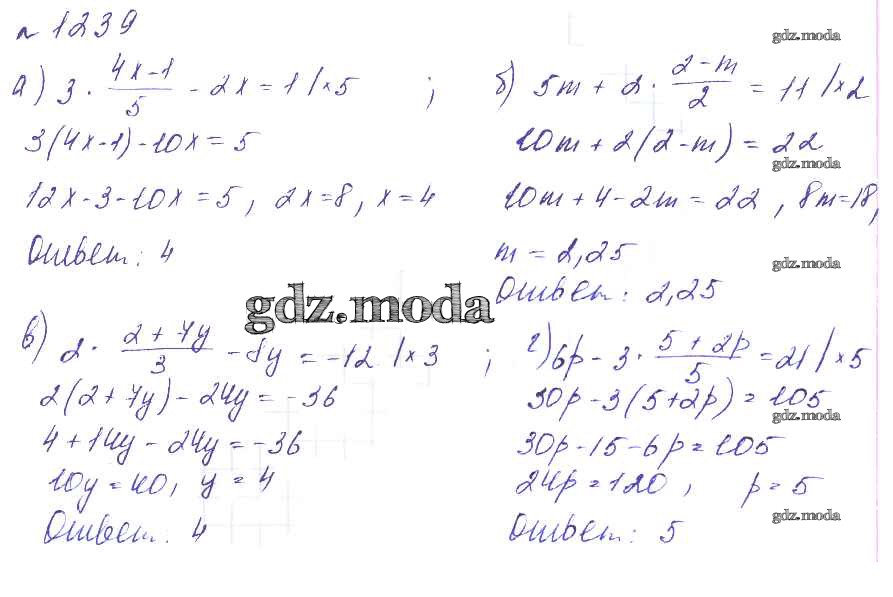 № 1239
gdz.moda
а) 3 · (4x-1)/5 - 2x = 1 /×5 ;
3(4x-1) - 10x = 5
12x - 3 - 10x = 5, 2x = 8, x = 4
Ответ: 4
б) 5m + 2 · (2-m)/2 = 11 /×2
10m + 2(2-m) = 22
gdz.moda
10m + 4 - 2m = 22, 8m = 18,
m = 2,25
gdz.moda
Ответ: 2,25
gdz.moda
в) 2 · (2+7y)/3 - 8y = -12 /×3 ;
2(2+7y) - 24y = -36
4 + 14y - 24y = -36
10y = 40, y = 4
Ответ: 4
г) 6p - 3 · (5+2p)/5 = 21 /×5
30p - 3(5+2p) = 105
gdz.moda
30p - 15 - 6p = 105
24p = 120, p = 5
gdz.moda
Ответ: 5